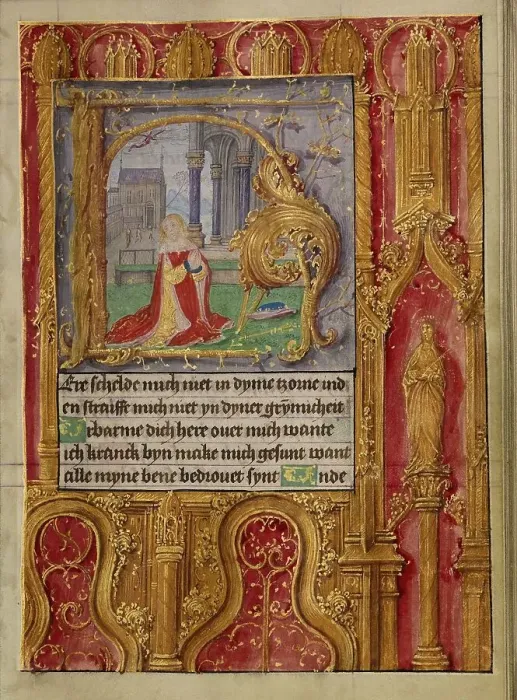 Ere schelde mich niet in dyme tzoine ind
en straiffe mich niet yn dyner grÿmicheit
Erbarme dich here ouer mich wante
ich kranck byn make mich gesunt want
alle myne bene bedrouet synt Unde